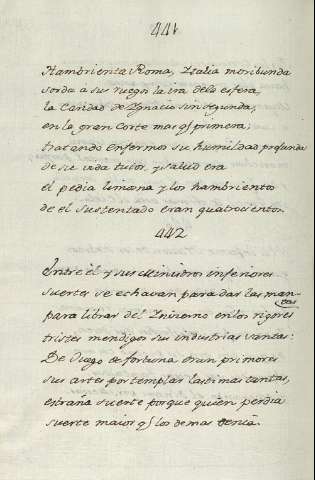 441
Hambrienta Roma, Italia moribunda
sorda a sus ruegos la ira dela esfera,
la Caridad de Ignacio sin segunda,
en la gran Corte mas q̃ primera;
tratando Enfermos su humildad profunda
de su vida tutor, y salud era
el pedia limosna y los hambrientos
de el sustentado eran quatrocientos.
442
Entre el y sus Ministros inferiores
suertes se echavan para dar las man
tas
para librar del Invierno en los rigores
tristes mendigos sus industrias santas:
De Juego de fortuna eran primores
sus artes por templar lastimas tantas,
estraña suerte porque quien perdia
suerte maior q̃ los demas tenia.